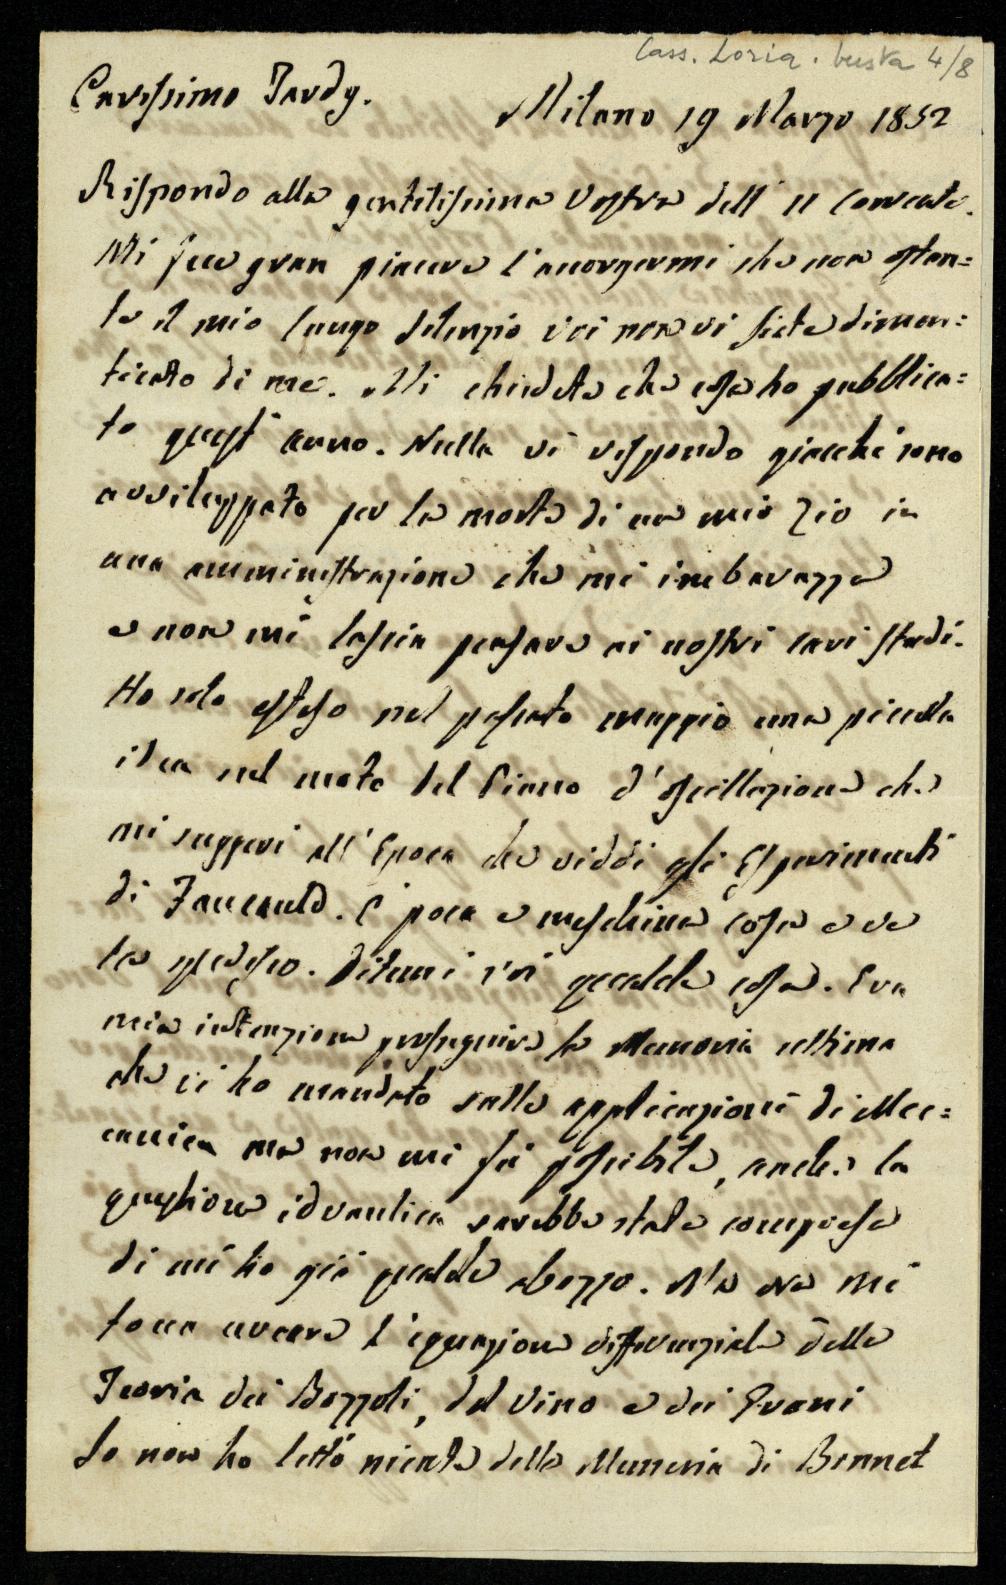 Cass. Loria. busta 4/8
Carissimo Tardy.
Milano 19 Marzo 1852
Rispondo alla gentilissima Vostra dell' 11 corrente.
Mi fece gran piacere l'accorgermi che non ostan=
te il mio lungo silenzio voi non vi siete dimen=
ticato di me. Mi chiedete che cosa ho pubblica=
to quest' anno. Nulla vi rispondo giacchè sono
avviluppato per la morte di un mio Zio in
una amministrazione che mi imbarazza
e non mi lascia pensare ai nostri cari studi.
Ho solo esteso nel passato maggio una piccola
idea sul moto del Piano d'oscillazione che
mi suggerì all' Epoca che viddi gli Esperimenti
di Foucauld. È poca e meschina cosa e ve
la spedisco. Ditemi voi qualche cosa. Era
mia intenzione proseguire la Memoria ultima
che vi ho mandato sulle applicazioni di Mec=
canica ma non mi fù possibile, anche la
questione idraulica sarebbe stata compresa
di cui ho già qualche abozzo. Ma ora mi
tocca cercare l'equazione differenziale della
Teoria dei Bozzoli, del Vino e dei Grani
Io non ho letto niente della Memoria di Bonnet